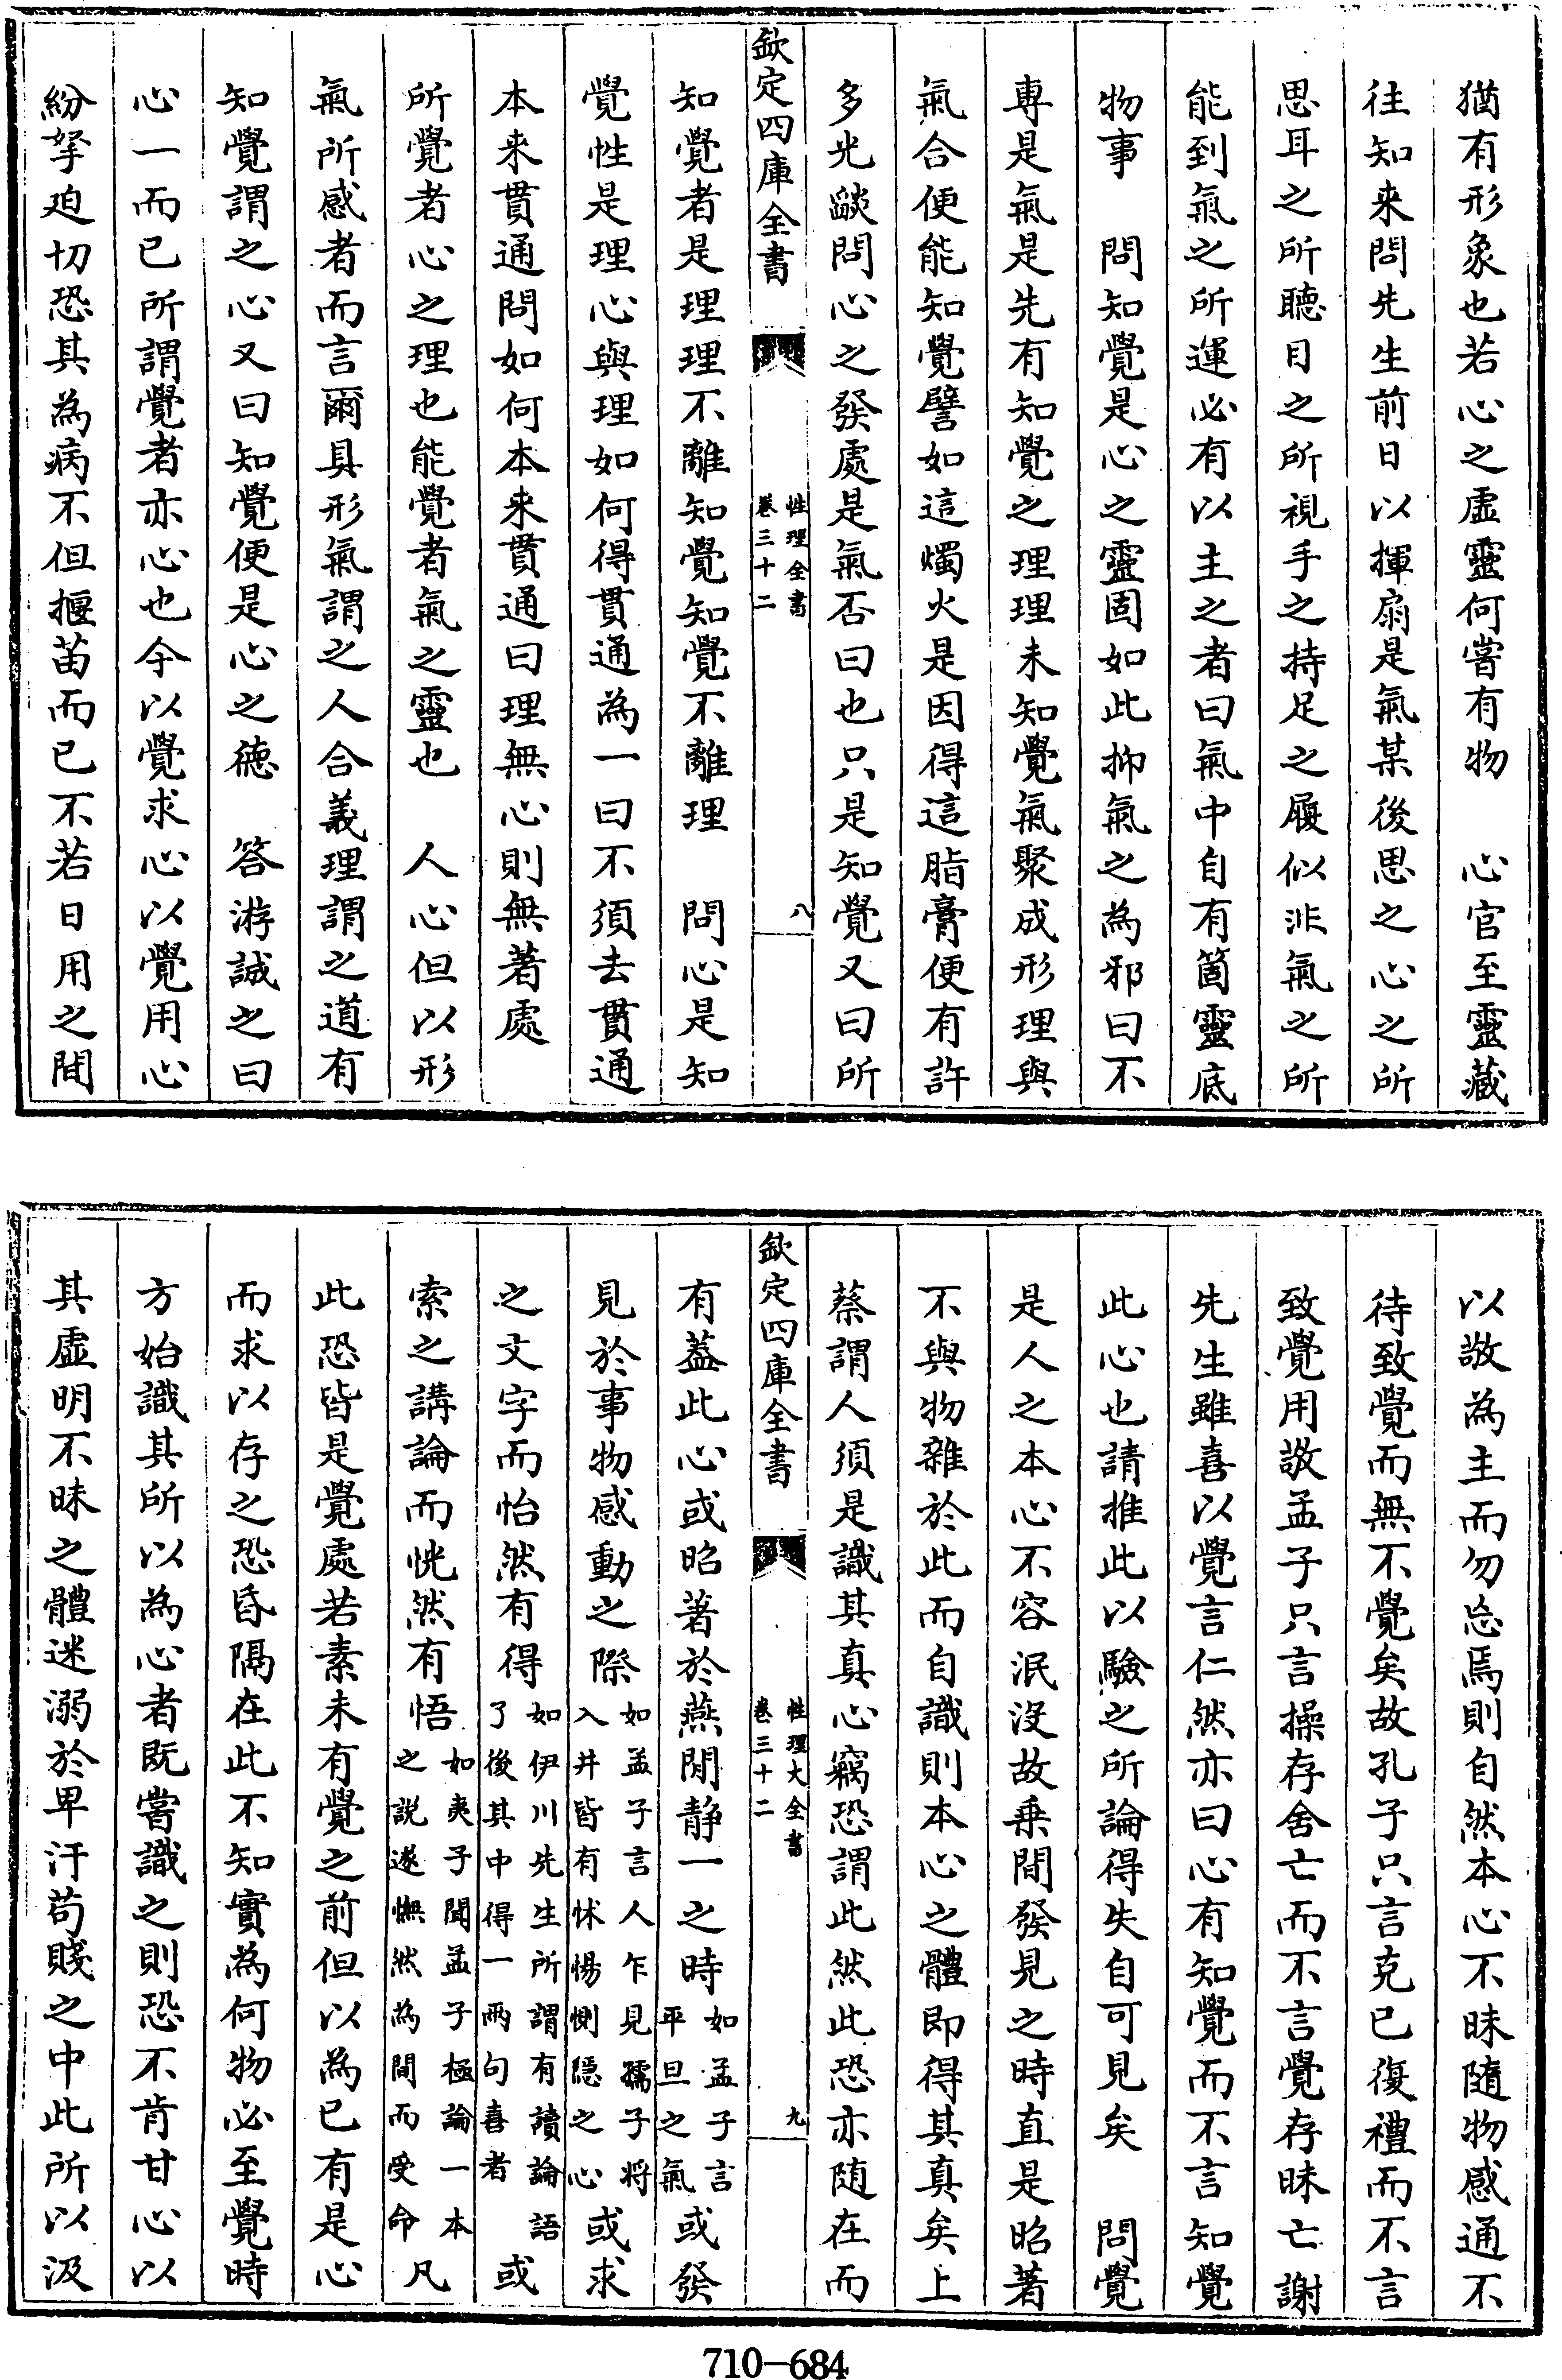 猶有形象也若心之虛靈何嘗有物　心官至靈藏
往知来問先生前日以揮扇是氣某後思之心之所
思耳之所聽目之所視手之持足之履似非氣之所
能到氣之所運必有以主之者曰氣中自有箇靈底
物事　問知覺是心之靈固如此抑氣之為邪曰不
專是氣是先有知覺之理理未知覺氣聚成形理與
氣合便能知覺譬如這燭火是因得這脂膏便有許
多光燄問心之發處是氣否曰也只是知覺又曰所
欽定四庫全書
性理全書
卷三十二
八
知覺者是理理不離知覺知覺不離理　問心是知
覺性是理心與理如何得貫通為一曰不須去貫通
本来貫通問如何本来貫通曰理無心則無著處
所覺者心之理也能覺者氣之靈也　人心但以形
氣所感者而言爾具形氣謂之人合義理謂之道有
知覺謂之心又曰知覺便是心之德　答游誠之曰
心一而已所謂覺者亦心也今以覺求心以覺用心
紛拏廹切恐其為病不但揠苗而已不若日用之間
以敬為主而勿忘焉則自然本心不昧隨物感通不
待致覺而無不覺矣故孔子只言克已復禮而不言
致覺用敬孟子只言操存舍亡而不言覺存昧亡謝
先生雖喜以覺言仁然亦曰心有知覺而不言知覺
此心也請推此以驗之所論得失自可見矣　問覺
是人之本心不容泯没故乗間發見之時直是昭著
不與物雜於此而自識則本心之體即得其真矣上
蔡謂人須是識其真心竊恐謂此然此恐亦隨在而
欽定四庫全書
性理大全書
卷三十二
九
有葢此心或昭著於燕閒静一之時如孟子言平旦之氣或發
見於事物感動之際如孟子言人乍見孺子將入井皆有怵惕惻隠之心或求
之文字而怡然有得如伊川先生所謂有讀論語了後其中得一兩句喜者或
索之講論而恍然有悟如夷子聞孟子極論一本之説遂憮然為間而受命凡
此恐皆是覺處若素未有覺之前但以為已有是心
而求以存之恐昏隔在此不知實為何物必至覺時
方始識其所以為心者既嘗識之則恐不肯甘心以
其虛明不昧之體迷溺於卑汙苟賤之中此所以汲
710-684